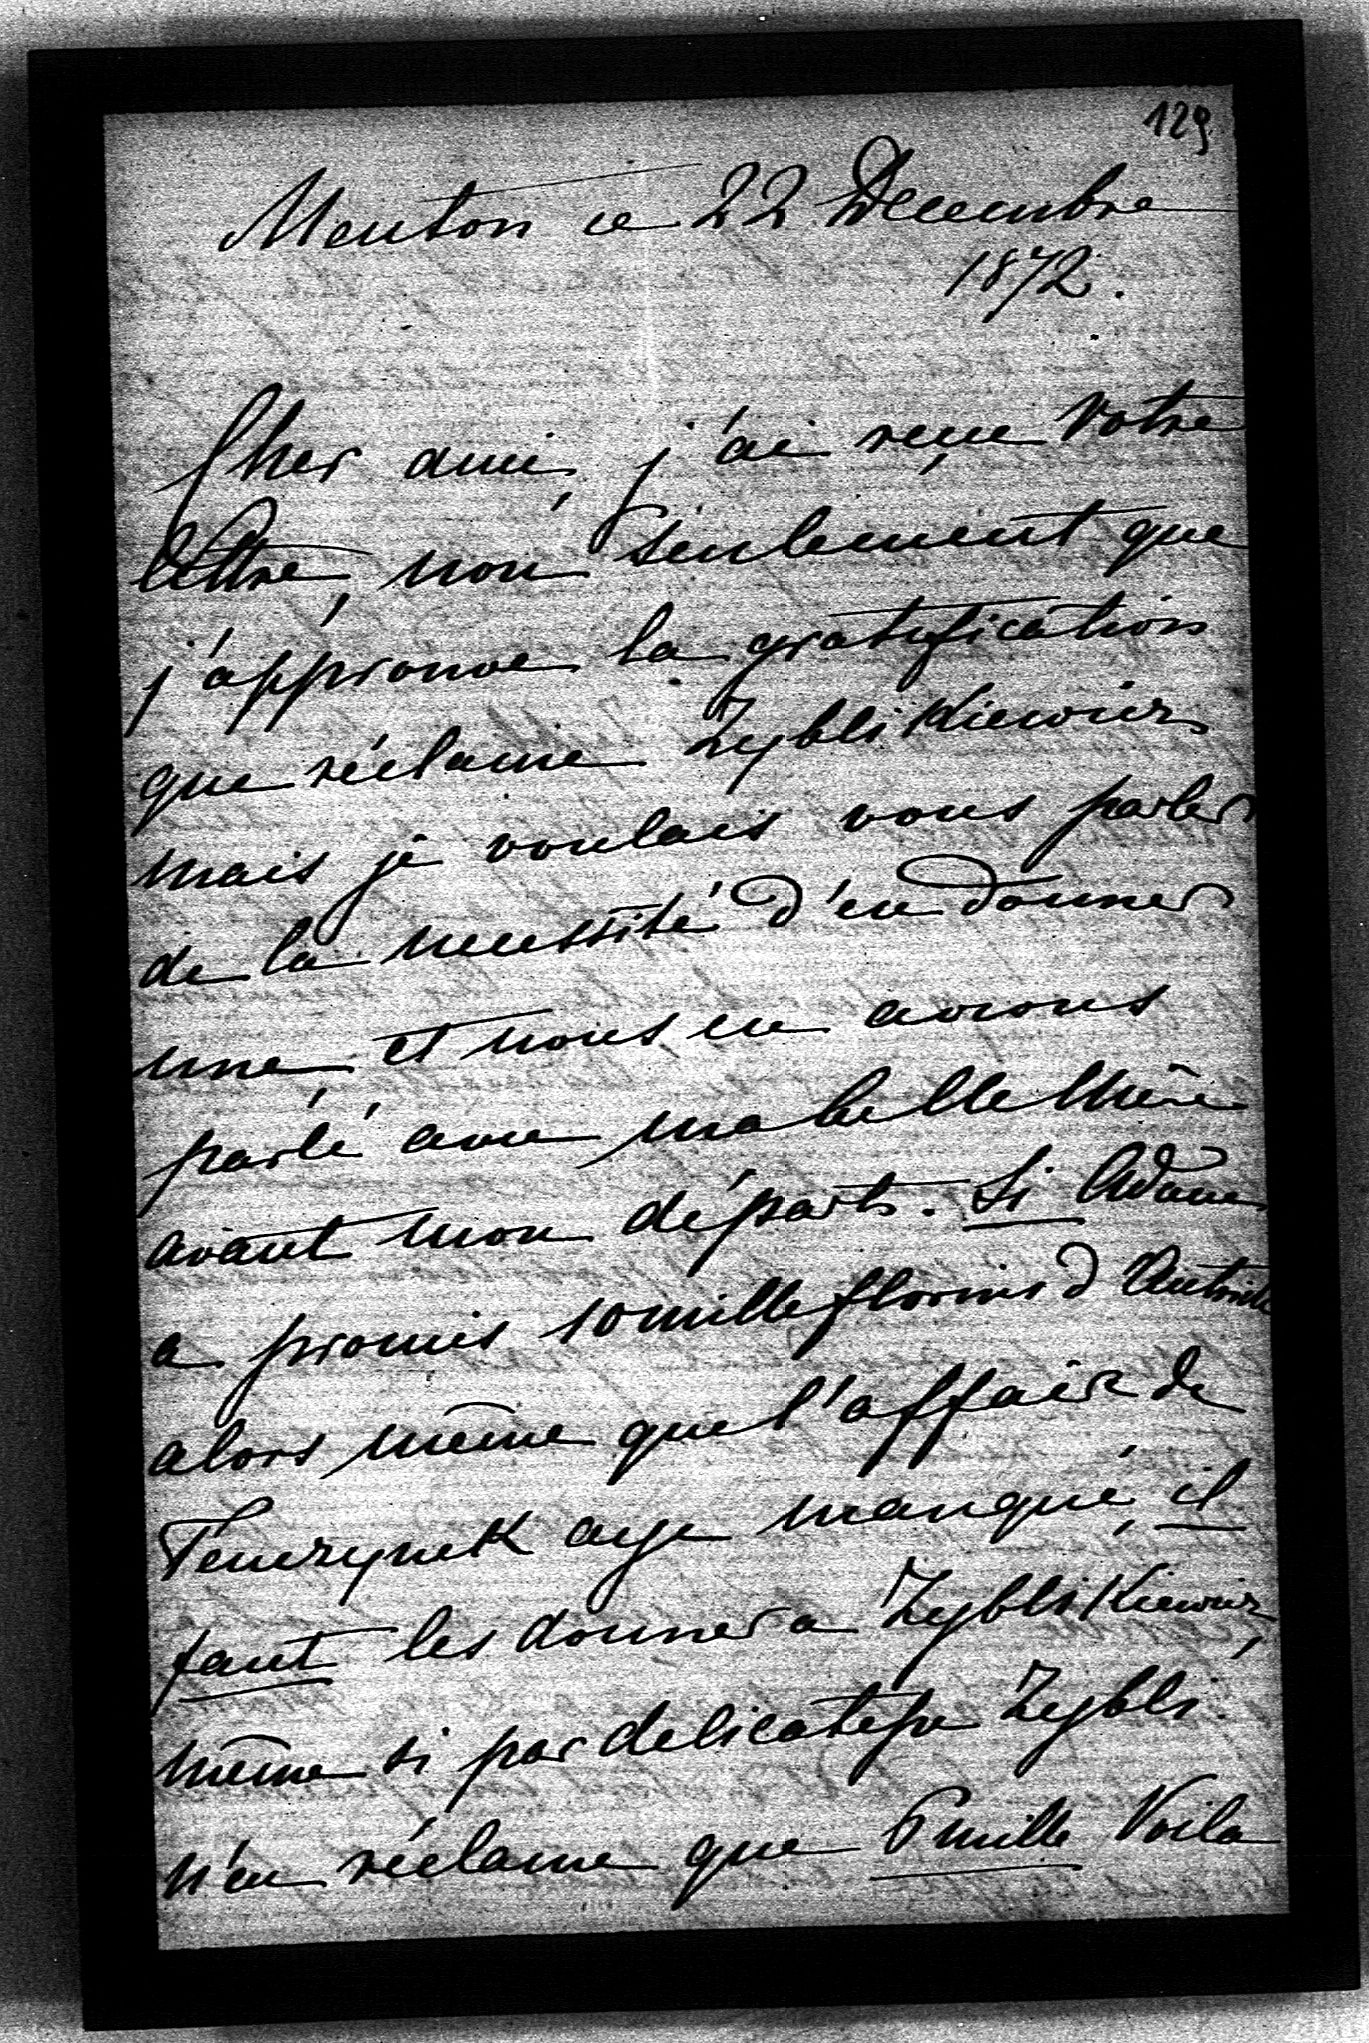 129
Menton ce 22 Decembre
1872.
Cher ami, j'ai reçu votre
lettre, non seulement que
j'approuve la gratification
que réclame Zyblikiewicz
mais je voulais vous parler
de la necessité d'en donner
une, et nous en avions
parlé avec ma belle Mère
avant mon départ. Si Adam
a promis 10 mille florins d'Autriche
alors même que l'affaire de
Tenczynek aye manqué, il
faut les donner a Zyblikiewicz,
même si par delicatesse Zybli.
n'en réclame que 6 mille Voila